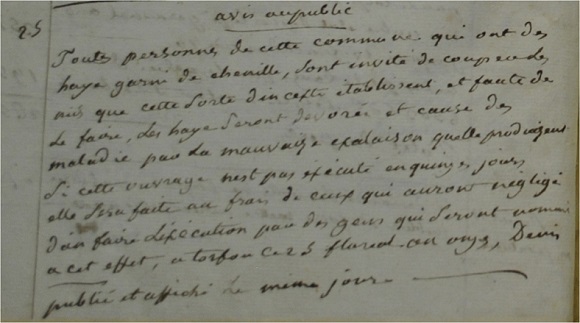 avis au public
25 Toutes personnes de cette commune qui ont des
haye garni de chenille, sont invité de couper les
nids que cette sorte dinceste établissent, et faute de
le faire, les haye seront devorée et cause des
maladie par la mauvaise exalaison quelle produisent
Si cette ouvrage nest pas exécuté en quinze jours
elle sera faite au frais de ceux qui auront négligé
den faire lexécution par des gens qui seront nommé
a cet effet, a torfou ce 25 floreal an onze,
publié et affiché le meme jour